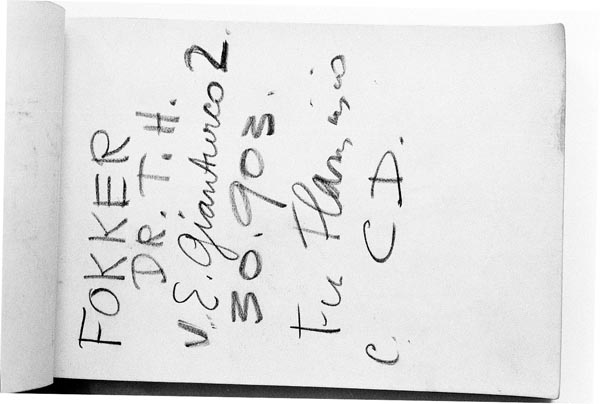 FOKKER
DR. T. H.
V. E. Gianturco 2.
30.903.
Flaminio
C. C D.